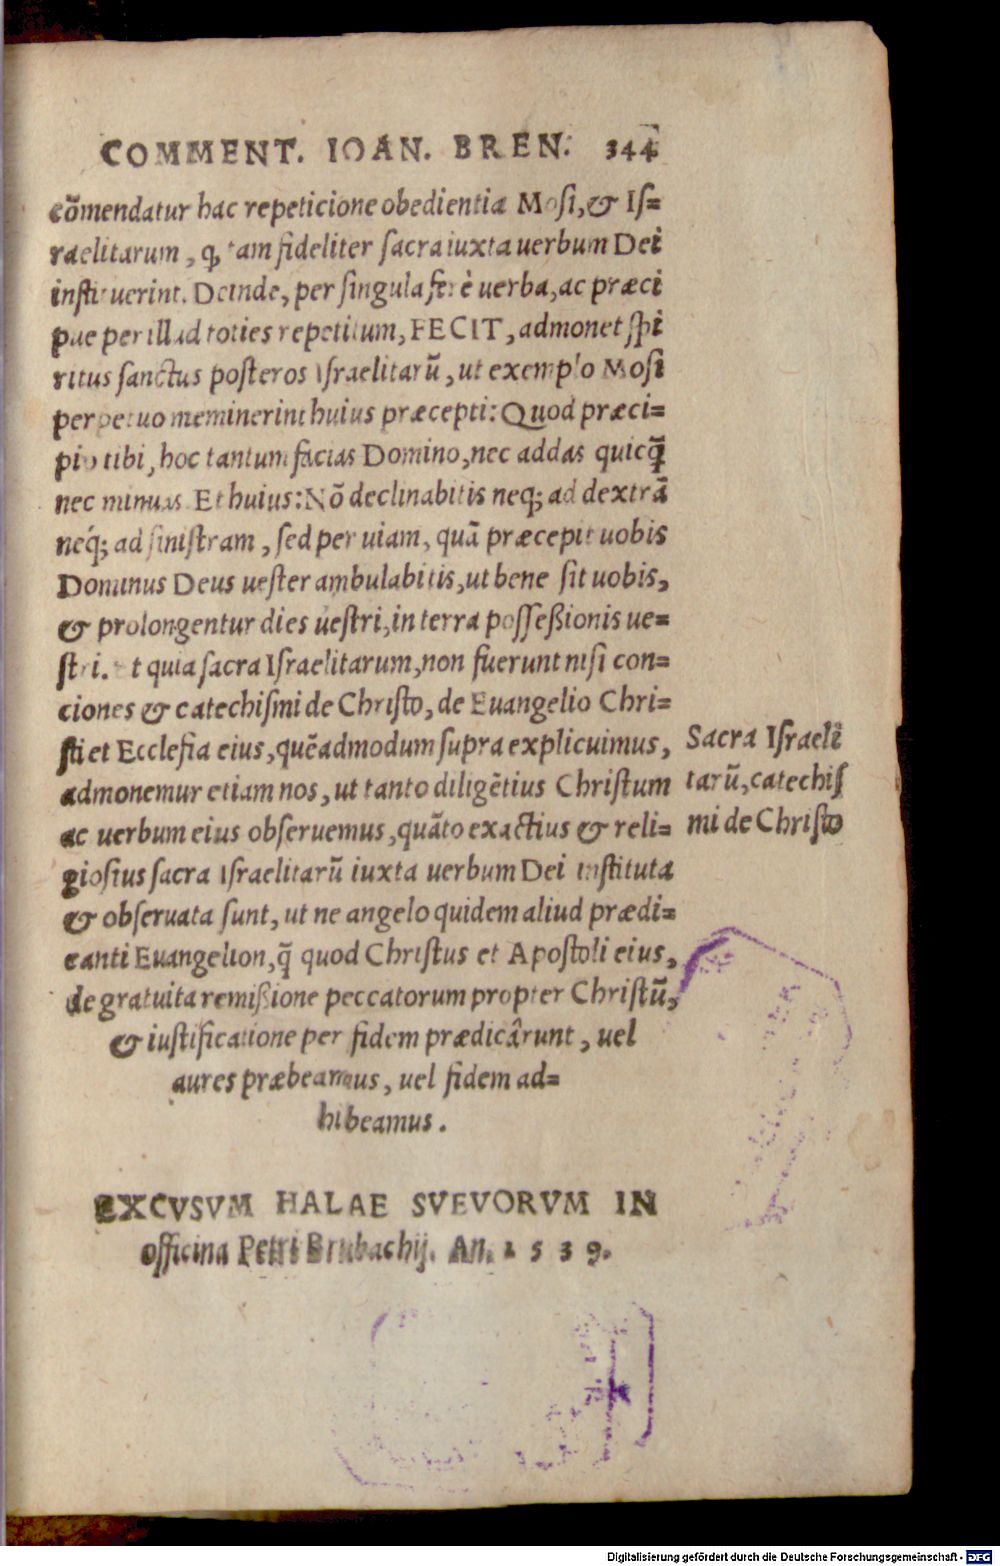 COMMENT. IOAN. BREN. 344
cõmendatur hac repeticione obedientia Mosi, & Is=
raelitarum, ꝙ tam fideliter sacra iuxta uerbum Dei
instituerint. Deinde, per singula ferè uerba, ac præci
pue per illud toties repetitum, FECIT, admonet spi
ritus sanctus posteros Israelitarũ, ut exemplo Mosi
perpetuo meminerint huius præcepti: Quod præci=
pio tibi, hoc tantum facias Domino, nec addas quicq̃
nec minuas. Et huius: Nõ declinabitis neq; ad dextrã
neq́; ad sinistram, sed per uiam, quã præcepit uobis
Dominus Deus uester ambulabitis, ut bene sit uobis,
& prolongentur dies uestri, in terra possessionis ue=
stri. Et quia sacra Israelitarum, non fuerunt nisi con=
ciones & catechismi de Christo, de Euangelio Chri=
sti et Ecclesia eius, quẽadmodum supra explicuimus,
admonemur etiam nos, ut tanto diligẽtius Christum
ac uerbum eius obseruemus, quãto exactius & reli=
giosius sacra Israelitarũ iuxta uerbum Dei instituta
& obseruata sunt, ut ne angelo quidem aliud prædi=
canti Euangelion, q̃ quod Christus et Apostoli eius,
de gratuita remißione peccatorum propter Christũ,
& iustificatione per fidem prædicârunt, uel
aures præbeamus, uel fidem ad=
hibeamus.
Sacra Israeli
tarũ, catechis
mi de Christo
EXCVSVM HALAE SVEVORVM IN
officina Petri Brubachij. An. 1539.
Digitalisierung gefördert durch die Deutsche Forschungsgemeinschaft - DFG